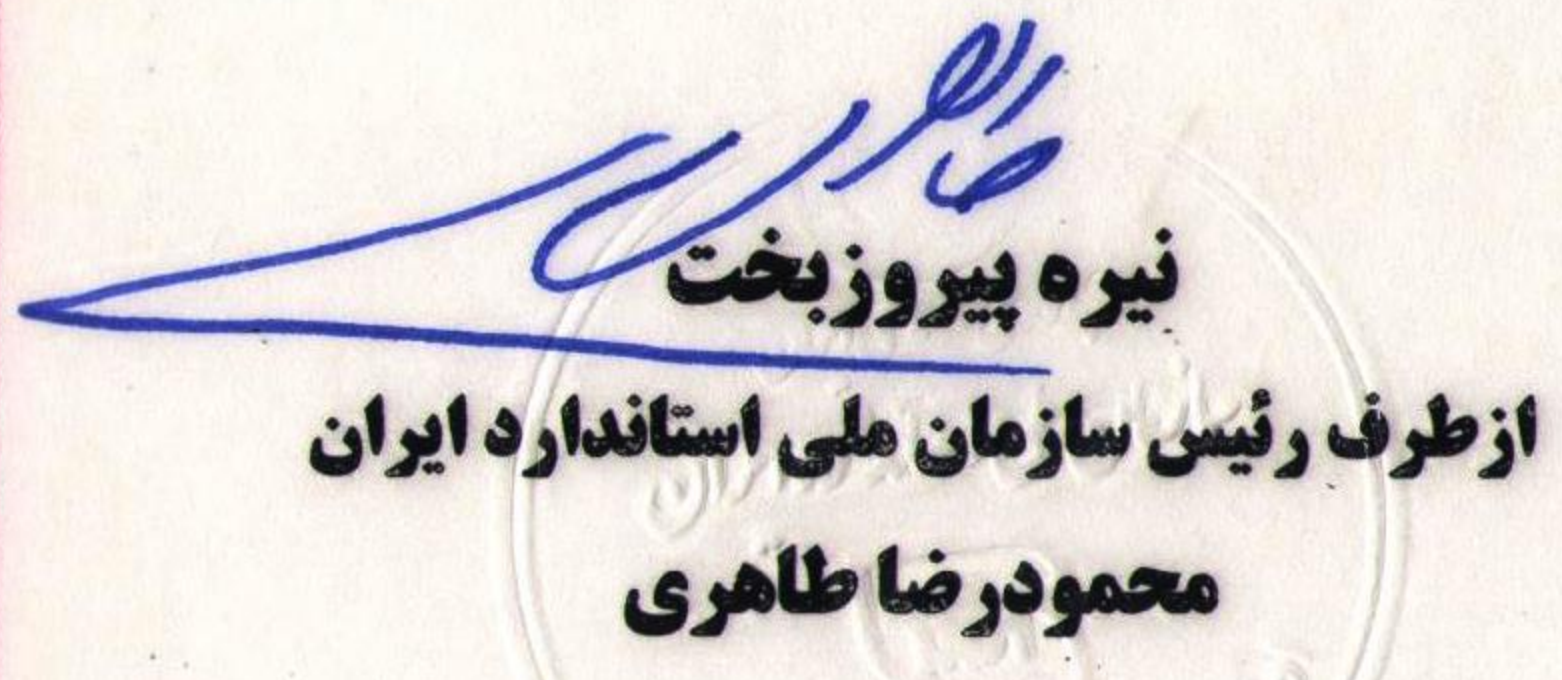 نیره پیروزبخت
ازطرف رئیس سازمان ملی استاندارد ایران
محمودرضا طاهری